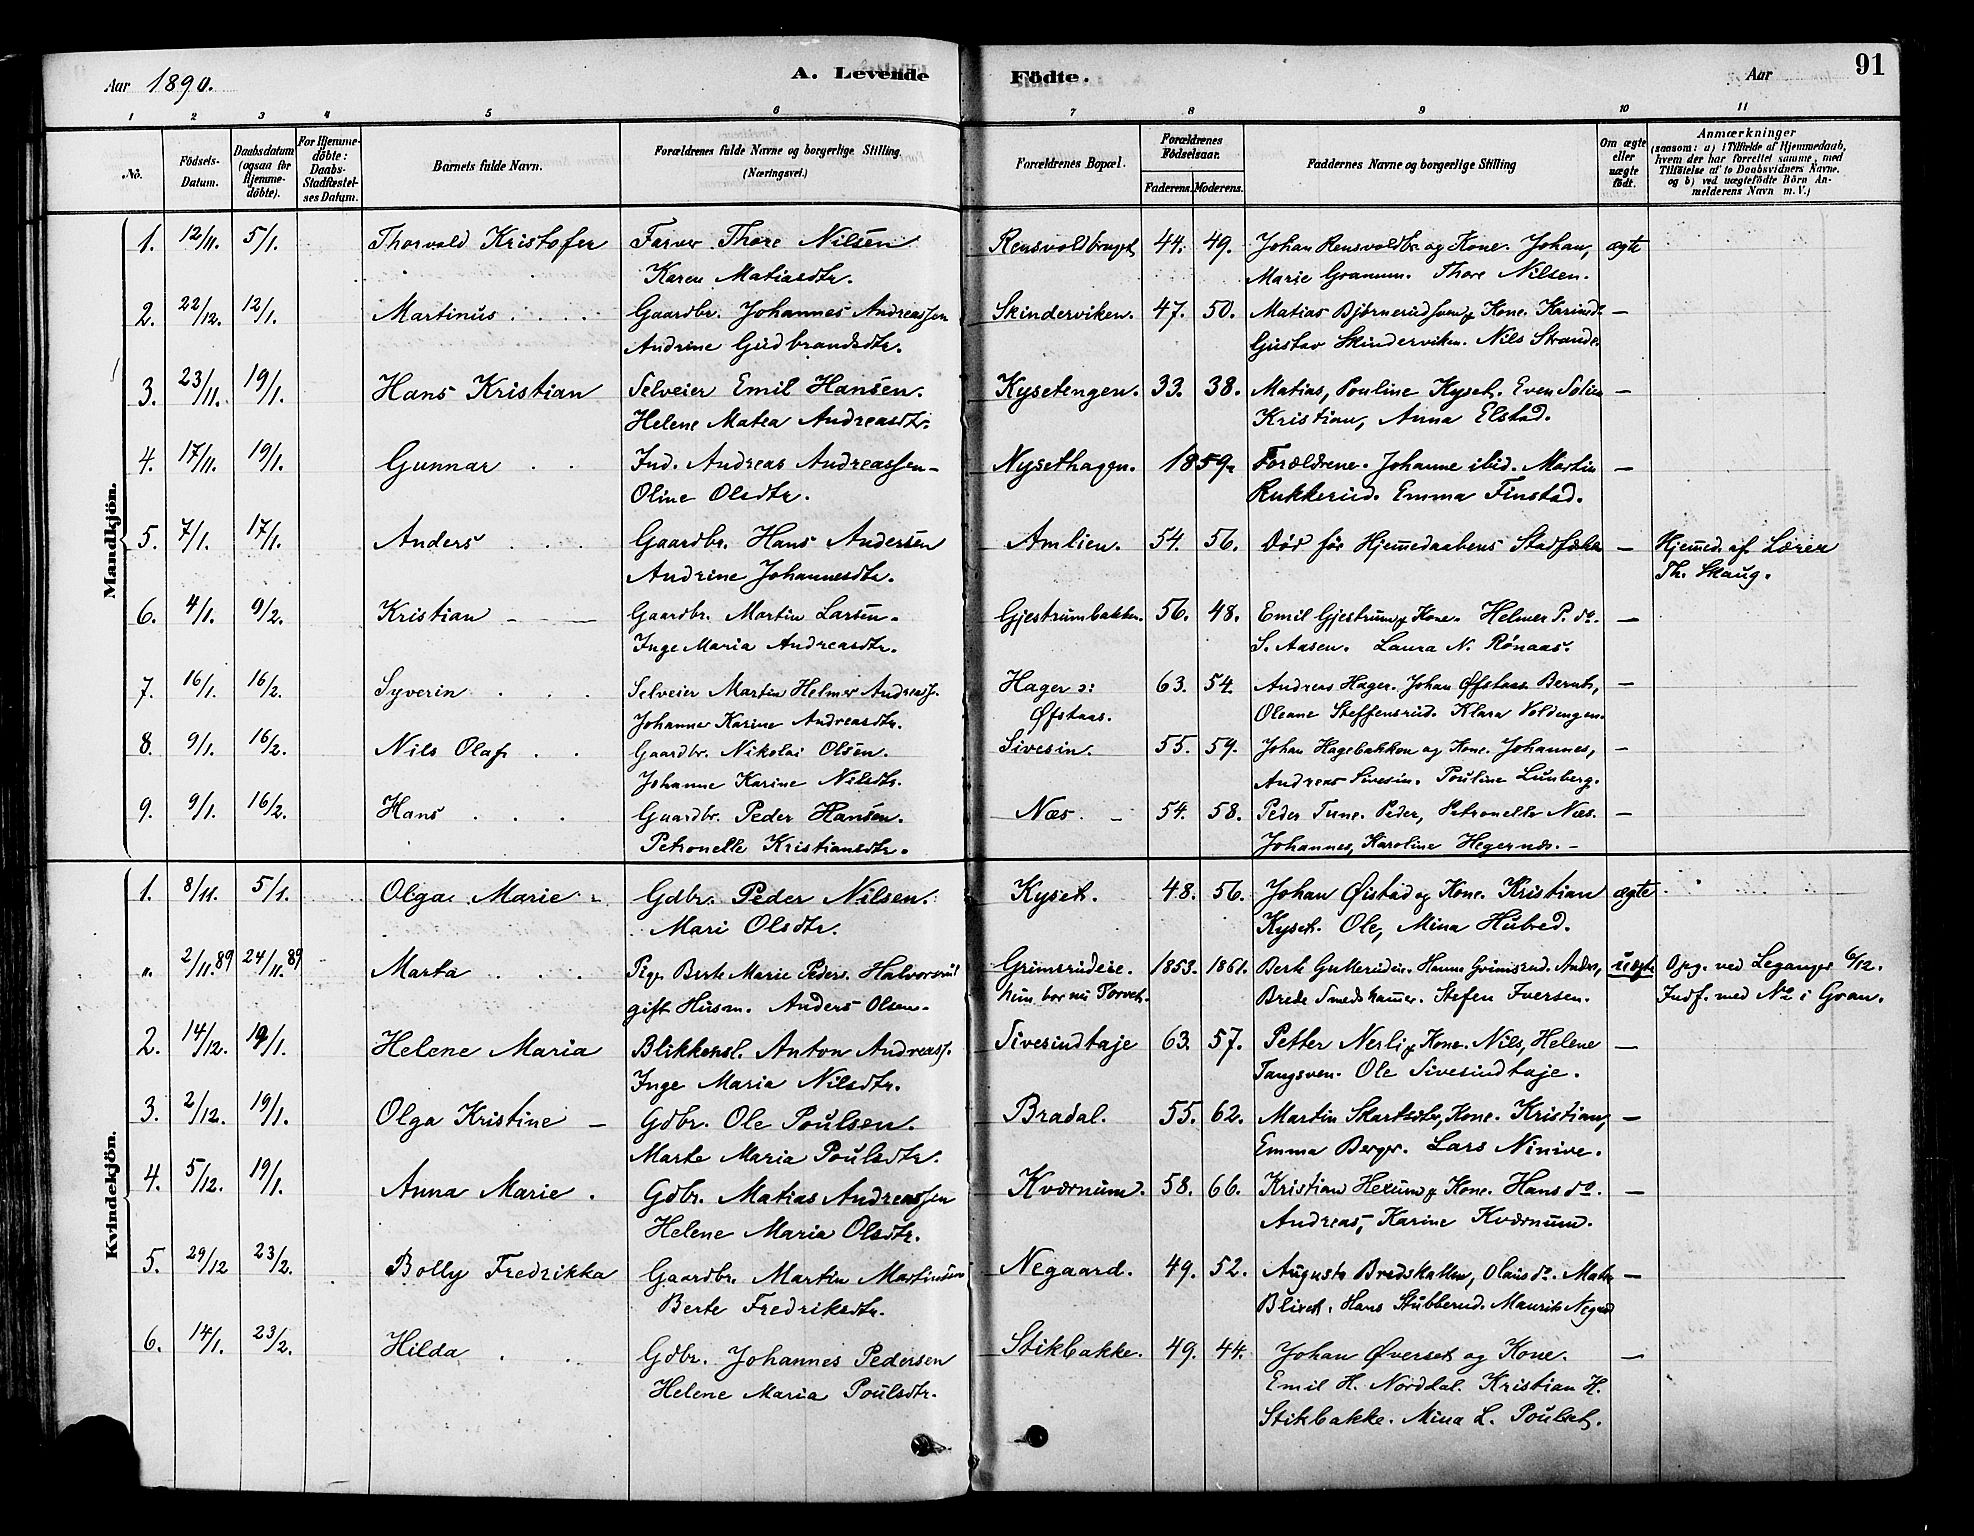 Aar 1890.
A. Levende
Födte.
Aar
91
1 2 3 4 5 6 7 8 9 10 11
No.
Födsels-Datum.
Daabsdatum (ogsaa for Hjemme-döbte).
For Hjemme-döbte: Daabs-Stadfæstel-ses Datum.
Barnets fulde Navn.
Forældrenes fulde Navne og borgerlige Stilling (Næringsvei.)
Forældrenes Bopæl.
Forældrenes Födselsaar.
Faderens. Moderens.
Faddernes Navne og borgerlige Stilling
Om ægte eller uægte födt.
Anmærkninger
(saasom: a) i Tilfælde af Hjemmedaab,
hvem der har forrettet samme, med
Tilföielse af to Daabsvidners Navne.
og b) ved uægtefödte Börn An-
melderens Navn m. V.)
Mandkjön.
1. 12/11. 5/1. Thorvald Kristofer Farver Thore Nilsen Rensvoldbruget 44. 49. Johan Rensvoldbr. og Kone. Johan, ægte
Karen Matiasdtr. Marie Granum. Thore Nilsen.
2. 22/12. 12/1. Martinus Gaardbr. Johannes Andreassen Skinderviken. 47. 50. Matias Bjørnerud og Kone. Karind. —
Andrine Gudbrandsdtr. Gustav Skinderviken. Nils Strande.
3. 23/11. 19/1. Hans Kristian Selveier Emil Hansen. Kysetengen. 33. 38. Matias, Pouline Kyset. Even —
Helene Matea Andreasdtr. Kristian, Anna Elstad.
4. 17/11. 19/1. Gunnar Ind. Andreas Andreassen Nysethagen. 1859. Forældrene. Johanne ibid. Martin —
Oline Olsdtr. Rukkerud. Emma Finstad.
5. 7/1. 17/1. Anders Gaardbr. Hans Andersen Amlien. 54. 56. Død før Hjemmedaabens Stadfæstelse — Hjemmed. af Lærer
Andrine Johannesdtr. Th. Skaug.
6. 4/1. 9/2. Kristian Gaardbr. Martin Larsen. Gjestrumbakken. 56. 48. Emil Gjestrum og Kone. Helmer P. do. —
Inge Maria Andreasdtr. S. Aasen. Laura N. Rønaas.
7. 16/1. 16/2. Syverin Selveier Martin Helmer Andreass. Hager o: 63. 54 Andreas Hager. Johan Øfstaas. Bernt, —
Johanne Karine Andreasdtr. Øfstaas. Oleane Steffensrud. Klara Voldengen.
8. 9/1. 16/2. Nils Olaf Gaardbr. Nikolai Olsen. Sivesin. 55. 59. Johan Hagebakken og Kone. Johannes, —
Johanne Karine Nilsdtr. Andreas Sivesin. Pouline Lunberg.
9. 9/1. 16/2. Hans Gaardbr. Peder Hansen. Næs. 54. 58. Peder Tune. Peder, Petronelle Næs. —
Petronelle Kristiansdtr. Johannes, Karoline Hegernæs.
Kvindekjön.
1. 8/11. 5/1. Olga Marie Gdbr. Peder Nilsen. Kyset. 48. 56. Johan Øistad og Kone. Kristian ægte
Mari Olsdtr. Kyset. Ole, Mina Hubred.
". 2/11.89 24/11.89 Marta Pige Berte Marie Peders. Halvorsrud Grimsrudeie. 1853. 1861. Berte Gulleruden. Hanna Grimsrud. Andrs, uægte Opg. ved Leganger 6/12.
gift Husm. Anders Olsen. hun bor nu Torvet. Brede Smedshammer. Stefen Iversen. Indf. med No 2 i Gran.
2. 14/12. 19/1. Helene Maria Blikkensl. Anton Andreass. Sivesindtaje 63. 57. Petter Nerli og Kone. Nils, Helene —
Inge Maria Nilsdtr. Tangsven. Ole Sivesindtaje.
3. 2/12. 19/1. Olga Kristine Gdbr. Ole Poulsen. Bradal. 55. 62. Martin Skartsæter, Kone. Kristian, —
Marte Maria Poulsdtr. Emma Berger. Lars Ninive.
4. 5/12. 19/1. Anna Marie Gdbr. Matias Andreassen Kværnum. 58. 66. Kristian Hexum og Kone. Hans do. —
Helene Maria Olsdtr. Andreas, Karine Kværnum.
5. 29/12 23/2. Bolly Fredrikka Gaardbr. Martin Martinsen Negaard. 49. 52. Augusta Bredskallen, Olaus do. —
Berte Fredriksdtr. Blixet. Hans Stubberud. Maurits Negrd
6. 14/1. 23/2. Hilda Gdbr. Johannes Pedersen Stikbakke. 49. 44. Johan Øverset og Kone. —
Helene Maria Poulsdtr. Emil H. Norddal. Kristian H.
Stikbakke. Mina L. Poulset.